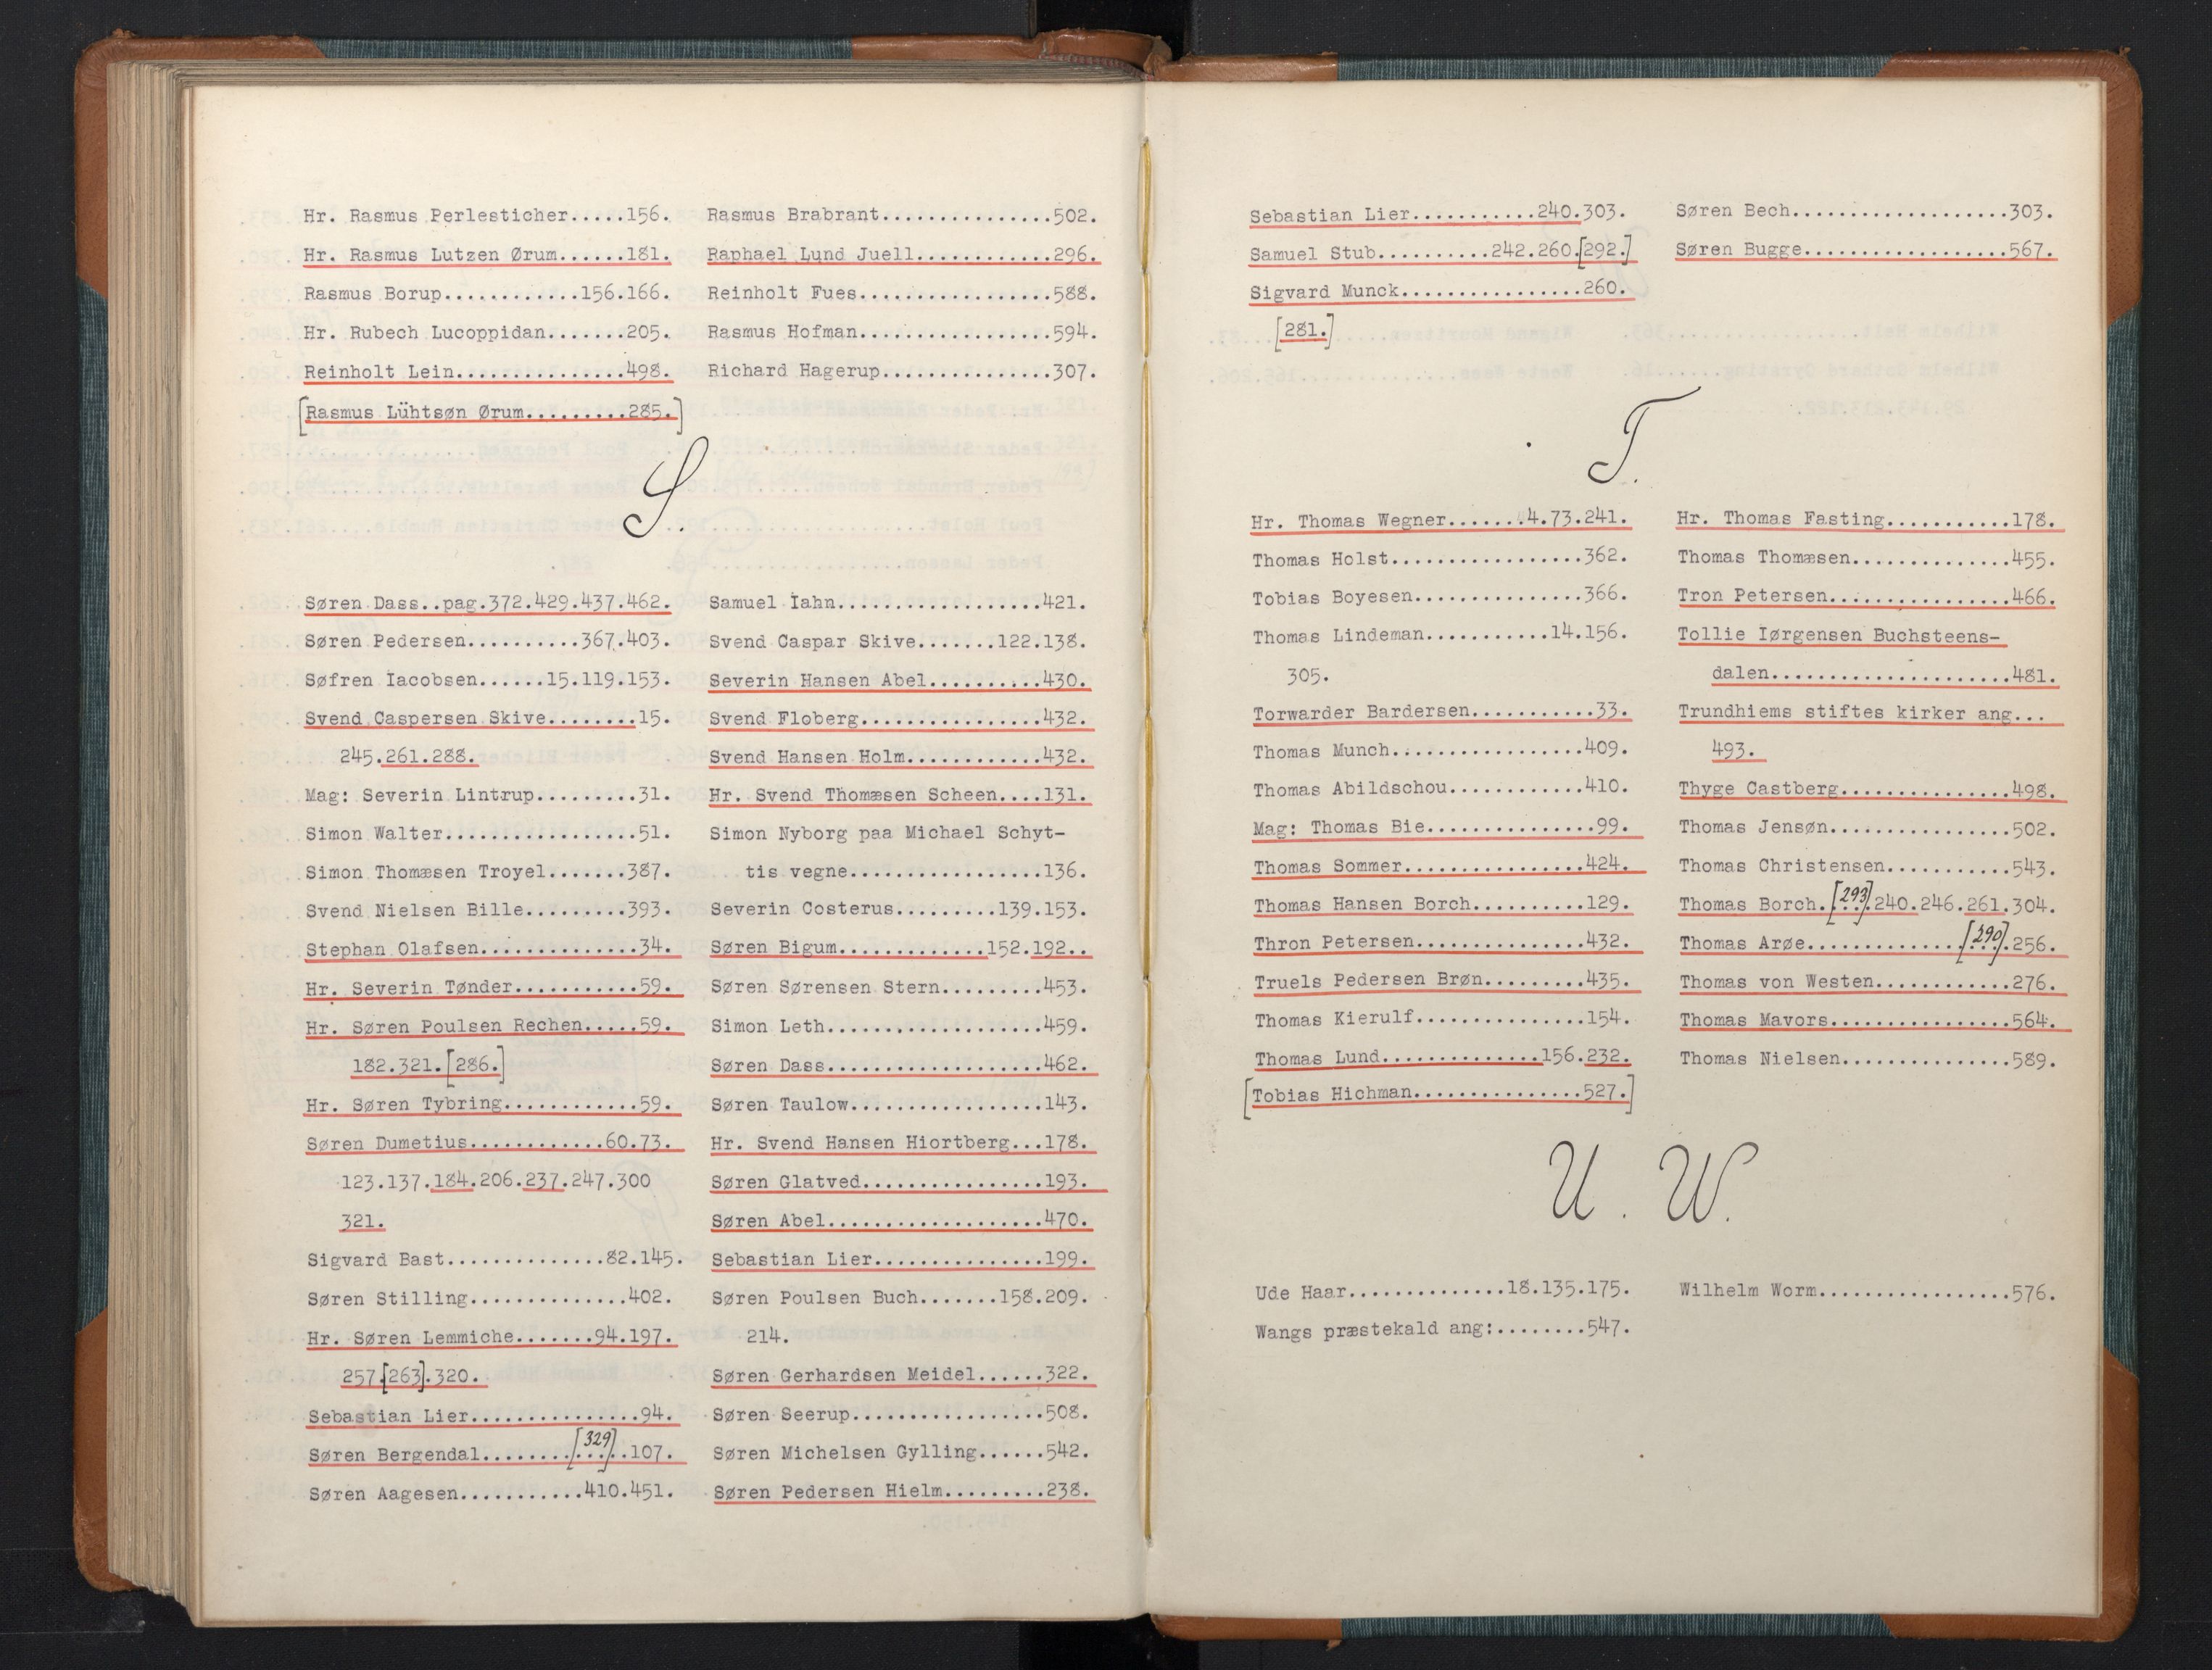 Hr. Rasmus Perlesticher.....156.
Hr. Rasmus Lutzen Ørum......181.
Rasmus Borup............156.166.
Hr. Rubech Lucoppidan.......205.
Reinholt Lein...............498.
[Rasmus Lühtsøn Ørum.........285.]
Rasmus Brabrant................502.
Raphael Lund Juell.............296.
Reinholt Fues..................588.
Rasmus Hofman..................594.
Richard Hagerup................307.
S.
Søren Dass..pag.372.429.437.462.
Søren Pedersen..........367.403.
Søfren Iacobsen......15.119.153.
Svend Caspersen Skive........15.
245.261.288.
Mag: Severin Lintrup.........31.
Simon Walter.................51.
Simon Thomæsen Troyel.......387.
Svend Nielsen Bille.........393.
Stephan Olafsen..............34.
Hr. Severin Tønder...........59.
Hr. Søren Poulsen Rechen.....59.
182.321.[286.]
Hr. Søren Tybring............59.
Søren Dumetius............60.73.
123.137.184.206.237.247.300
321.
Sigvard Bast..............82.145.
Søren Stilling..............402.
Hr. Søren Lemmiche.......94.197.
257.[263].320.
Sebastian Lier...............94.
Søren Bergendal........[329]..107.
Søren Aagesen...........410.451.
Samuel Iahn....................421.
Svend Caspar Skive.......122.138.
Severin Hansen Abel..........430.
Svend Floberg................432.
Svend Hansen Holm............432.
Hr. Svend Thomæsen Scheen....131.
Simon Nyborg paa Michael Schyt-
tis vegne..................136.
Severin Costerus.........139.153.
Søren Bigum.............152.192..
Søren Sørensen Stern.........453.
Simon Leth...................459.
Søren Dass...................462.
Søren Taulow.................143.
Hr. Svend Hansen Hiortberg...178.
Søren Glatved................193.
Søren Abel...................470.
Sebastian Lier...............199.
Søren Poulsen Buch.......158.209.
214.
Søren Gerhardsen Meidel......322.
Søren Seerup.................508.
Søren Michelsen Gylling......542.
Søren Pedersen Hielm.........238.
Sebastian Lier...........240.303.
Samuel Stub..........242.260.[292.]
Sigvard Munck................260.
[281.]
Søren Bech...................303.
Søren Bugge..................567.
T.
Hr. Thomas Wegner.......4.73.241.
Thomas Holst.................362.
Tobias Boyesen...............366.
Thomas Lindeman...........14.156.
305.
Torwarder Bardersen...........33.
Thomas Munch.................409.
Thomas Abildschou............410.
Mag: Thomas Bie...............99.
Thomas Sommer................424.
Thomas Hansen Borch..........129.
Thron Petersen...............432.
Truels Pedersen Brøn.........435.
Thomas Kierulf...............154.
Thomas Lund..............156.232.
[Tobias Hichman...............527.]
Hr. Thomas Fasting...........178.
Thomas Thomæsen..............455.
Tron Petersen................466.
Tollie Iørgensen Buchsteens-
dalen.....................481.
Trundhiems stiftes kirker ang...
493.
Thyge Castberg...............498.
Thomas Jensøn................502.
Thomas Christensen...........543.
Thomas Borch.[293].240.246.261.304.
Thomas Arøe..............[290].256.
Thomas von Westen............276.
Thomas Mavors................564.
Thomas Nielsen...............589.
U. W.
Ude Haar..............18.135.175.
Wangs præstekald ang:........547.
Wilhelm Worm.................576.